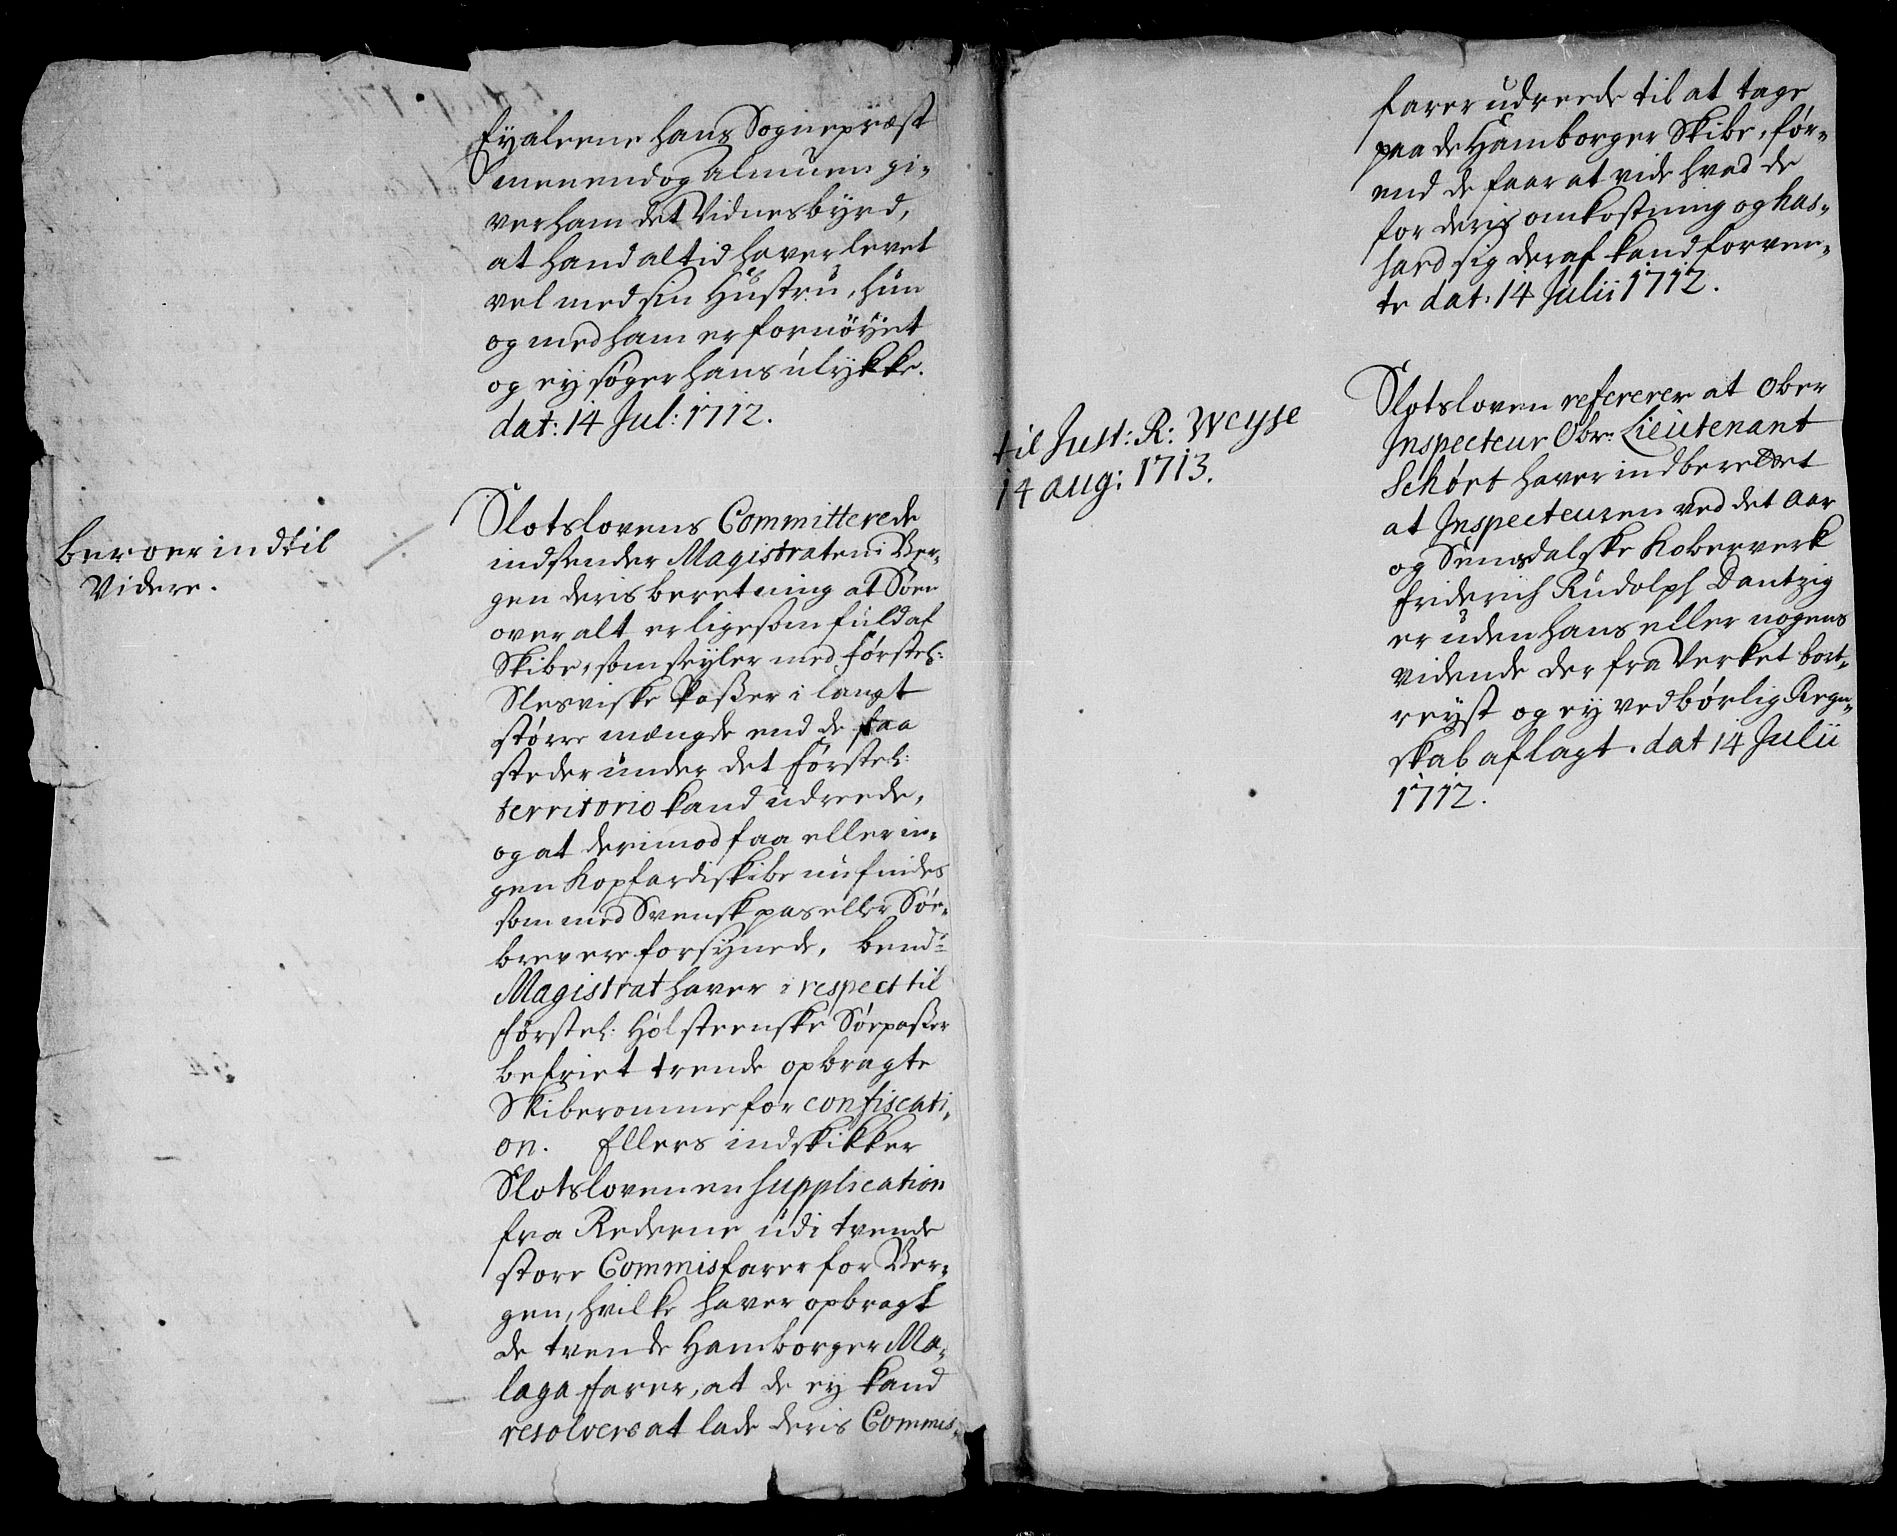 Ey aleene hans Sognepræst
menendog Almuen gi-
ver ham det Vidnesbyrd,
at hand altid haver levet
vel med sin Hustru, hun
og med ham er fornöyet
og ey søger hans ulykke.
dat: 14 Jul: 1712.
beroer indtil
Videre.
Slotslovens Committerede
indsender Magistraten i Ber-
gen deris beretning at Søen
over alt er ligesom fuld af
Skibe, som seyler med Førstel:
Slesviske Passer i langt
større mængde end de faa
steder under det Førstel:
territorio kand udreede,
og at derimod faa eller in-
gen Kopfardiskibe nu findes
som med Svensk pas eller Søe-
brev ere forsynede, bemd:te
Magistrat haver i respect til
Førstel: Holsteenske Søepasser
befriet trende opbragte
Skiberomme for confiscati-
on. Ellers indskikker
Slotsloven en supplication
fra Rederne udi tvende
store Commisfarer for Ber-
gen, hvilke haver opbragt
de tvende Hamborger Ma-
laga Farer, at de ey kand
resolvere at lade deris Commis-
farer udreede til at tage
paa de Hamborger Skibe, før-
end de faar at vide hvad de
for deris omkostning og has-
hard sig deraf kand forven-
te dat: 14 Julii 1712.
til Just: R: Weyse
14 aug: 1713.
Slotsloven refererer at Ober
Inspecteur Obr: Lieutenant
Schört haver indberettet
at Inspecteuren ved det Aar
og Semsdalske Koberverk
Friderich Rudolph Dantzig
er uden hans eller nogens
vidende der fra Verket bort-
reyst og ey ved børlig Regn-
skab aflagt. dat 14 Julii
1712.